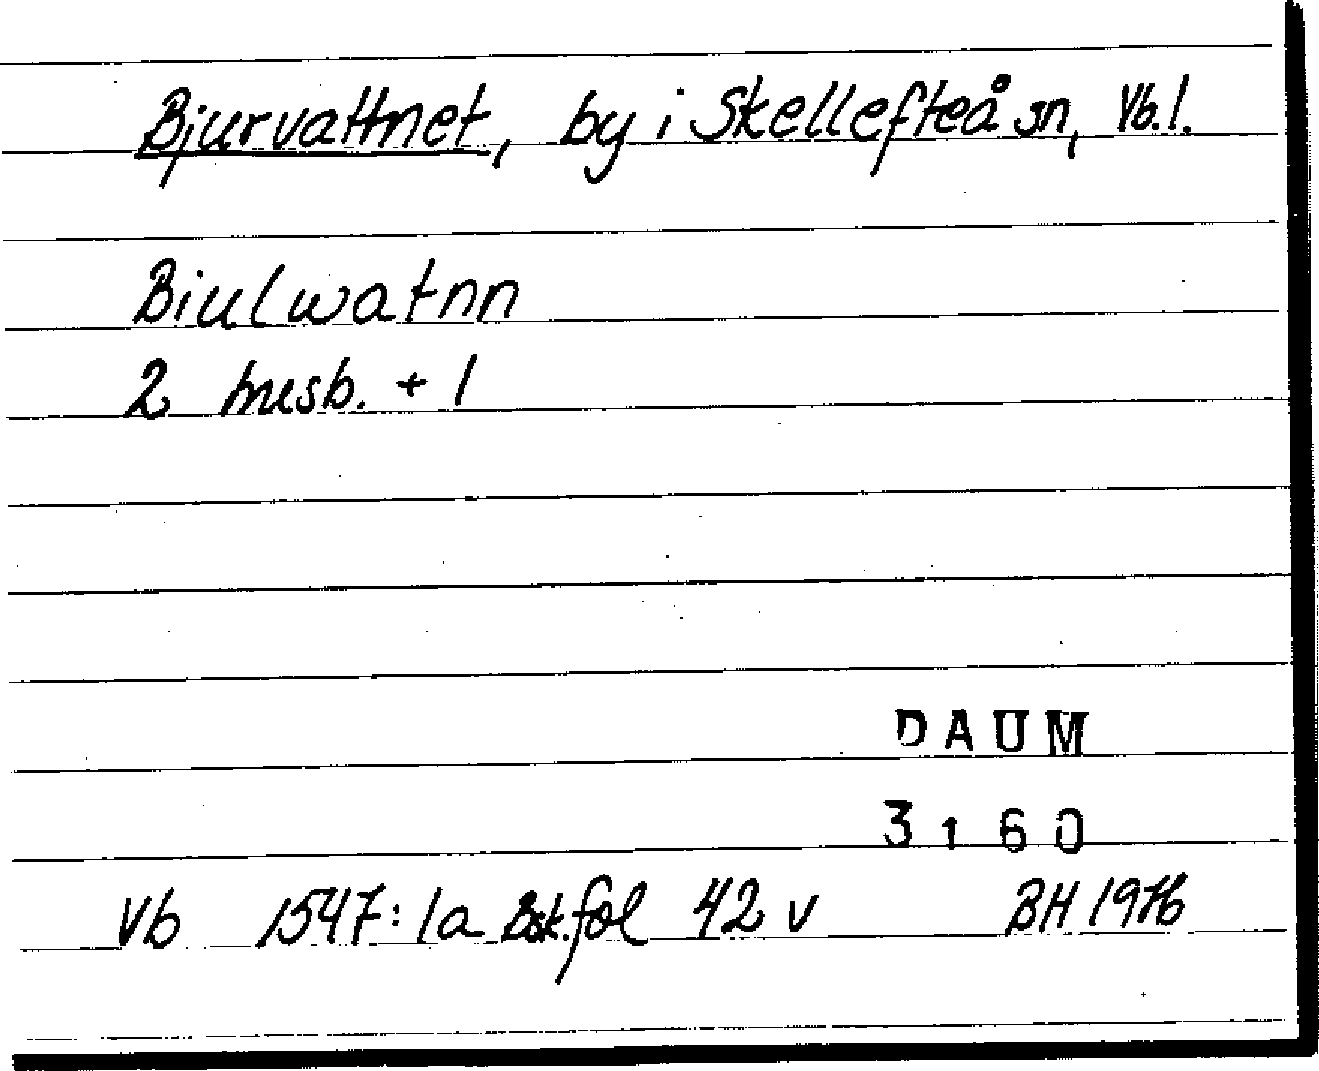 Bjurvattnet, by i Skellefteå sn, Vb.l.
Biulwatnn
2 husb. + 1
DAUM
3160
Vb 1547:1a Bsk.fol 42 v BH 1976